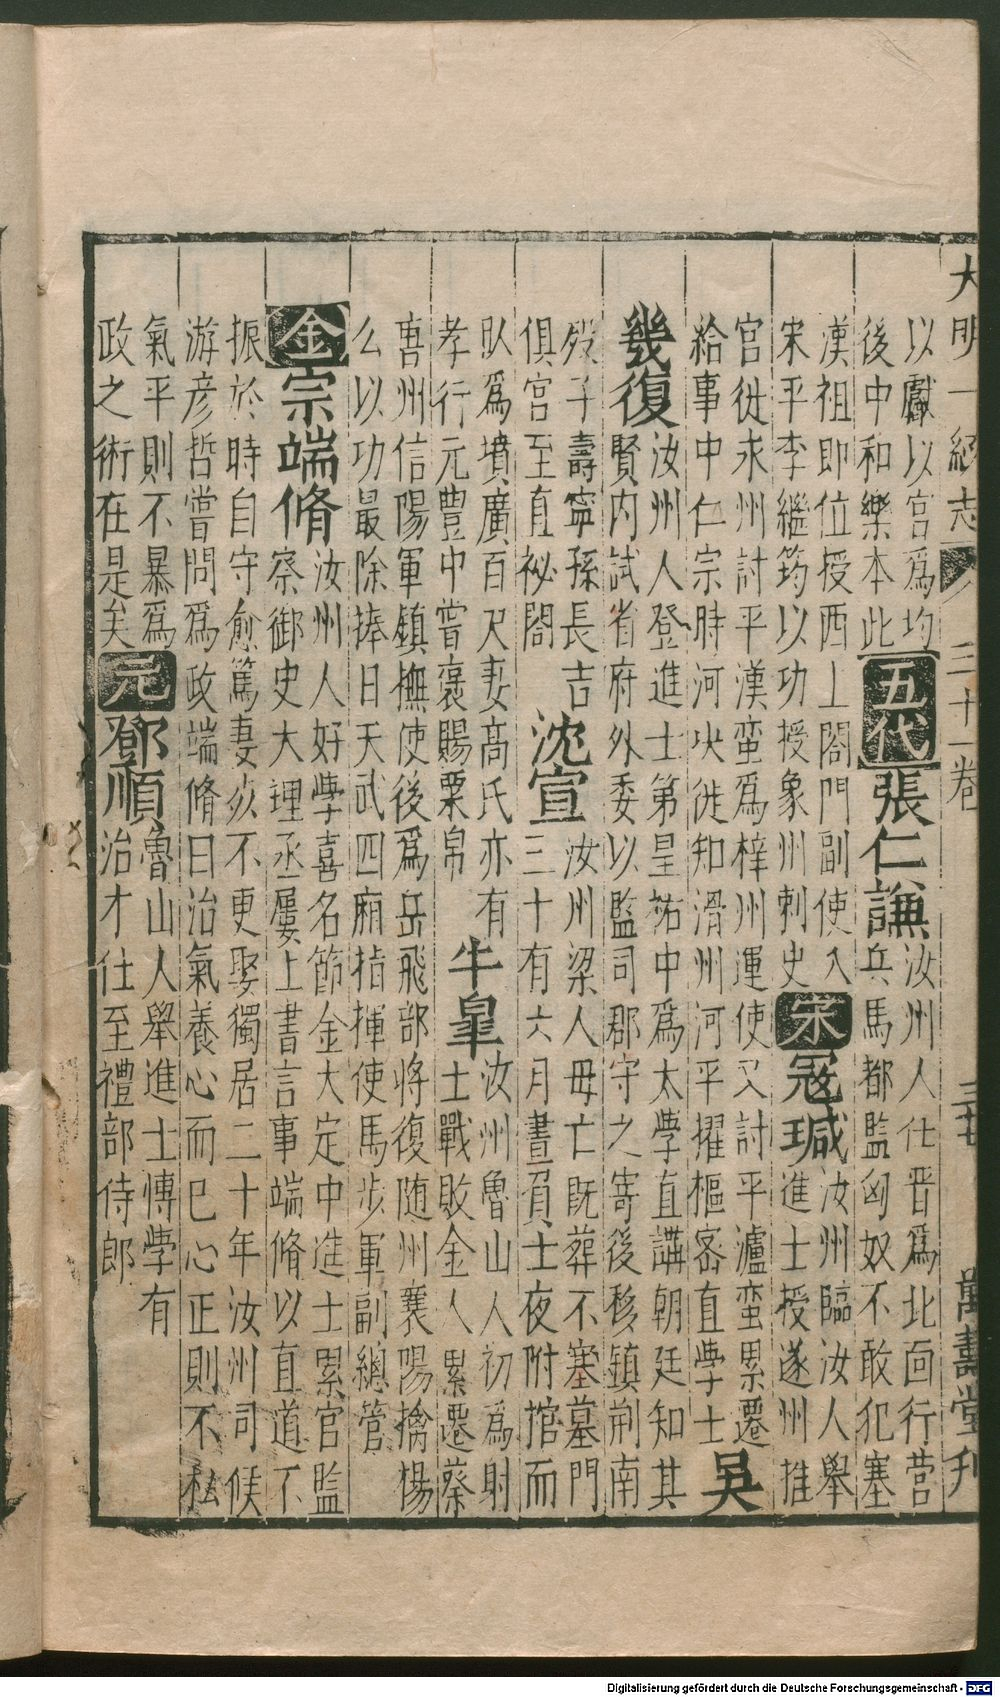 大明一統志 三十一卷 三十七 萬壽堂刋
以獻以宮為均
後中和樂本此五代張仁謙汝州人仕晋為北面行营
兵馬都監匈奴不敢犯塞
漢祖即位授西上閤門副使入
宋平李繼筠以功授象州刺史宋寇瑊汝州臨汝人舉
進士授遂州推
官徙永州討平漢蛮為梓州運使又討平瀘蛮累遷
給事中仁宗時河决徙知滑州河平擢樞密直學士吴
幾復汝州人登進士第皇祐中為太學直講朝廷知其
賢内試省府外委以監司郡守之寄後移鎮荆南
殁子壽寧孫長吉
俱官至直祕閣沈宣汝州梁人母亡既葬不塞墓門
三十有六月晝負士夜附棺而
臥為墳廣百尺妻高氏亦有
孝行元豊中嘗褒賜粟帛牛皐汝州魯山人初為射
士戰敗金人累遷蔡
唐州信陽軍鎮撫使後為岳飛部将復随州襄陽擒楊
么以功最除捧日天武四廂指揮使馬步軍副總管
金宗端脩汝州人好學喜名節金大定中進士累官監
察御史大理丞屢上書言事端脩以直道不
振於時自守愈篤妻歿不更娶獨居二十年汝州司候
游彦哲嘗問為政端脩曰治氣養心而已心正則不私
氣平則不暴為
政之術在是矣元鄧順魯山人舉進士博學有
治才仕至禮部侍郎
Digitalisierung gefördert durch die Deutsche Forschungsgemeinschaft - DFG